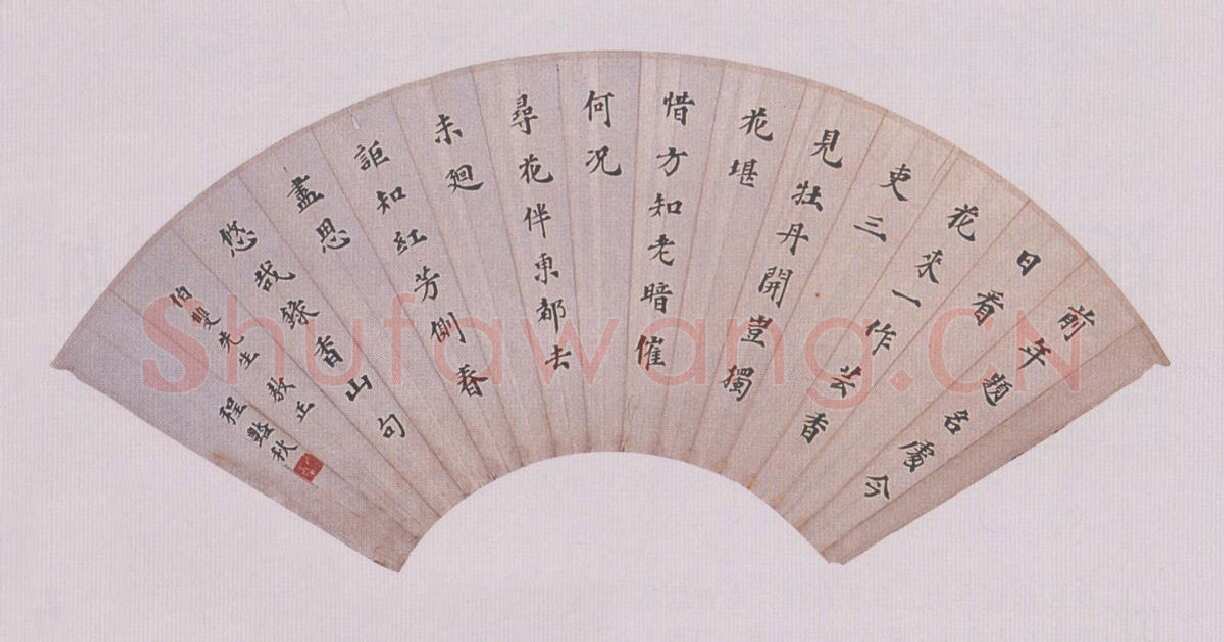 前年題名處今
日看
花來一作芸香
吏三
見牡丹開豈獨
花堪
惜方知老暗催
何況
尋花伴東都去
未廻
詎知紅芳側春
盡思
悠哉錄香山句
伯先生教正
程豔秋
Shufawang.CN